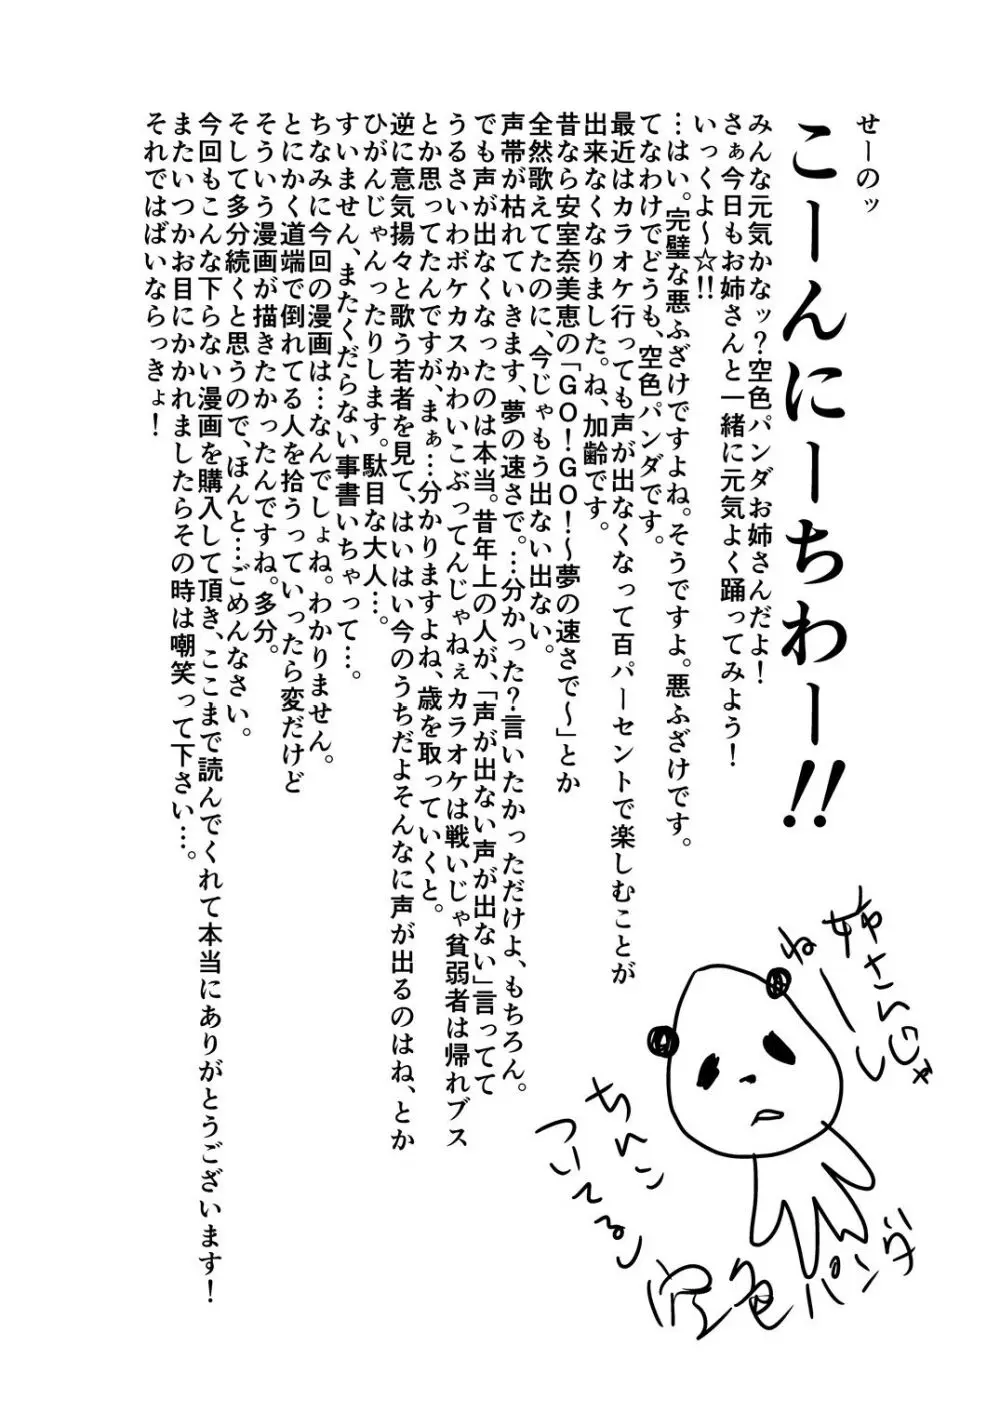 せーのッ
こーんにーちわー!!
みんな元気かなッ?空色パンダお姉さんだよ!
さぁ今日もお姉さんと一緒に元気よく踊ってみよう!
いっくよ〜☆!!
…はい。完璧な悪ふざけですよね。そうですよ。悪ふざけです。
てなわけでどうも、空色パンダです。
最近はカラオケ行っても声が出なくなって百パーセントで楽しむことが
出来なくなりました。ね、加齢です。
昔なら安室奈美恵の「GO!GO!〜夢の速さで〜」とか
全然歌えてたのに、今じゃもう出ない出ない。
声帯が枯れていきます、夢の速さで。…分かった?言いたかっただけよ、もちろん。
でも声が出なくなったのは本当。昔年上の人が、「声が出ない声が出ない」言ってて
うるさいわボケカスかわいこぶってんじゃねぇカラオケは戦いじゃ貧弱者は帰れブス
とか思ってたんですが、まぁ…分かりますよね、歳を取っていくと。
逆に意気揚々と歌う若者を見て、はいはい今のうちだよそんなに声が出るのはね、とか
ひがんじゃんったりします。駄目な大人…。
すいません、またくだらない事書いちゃって…。
ちなみに今回の漫画は…なんでしょね。わかりません。
とにかく道端で倒れてる人を拾うっていったら変だけど
そういう漫画が描きたかったんですね。多分。
そして多分続くと思うので、ほんと…ごめんなさい。
今回もこんな下らない漫画を購入して頂き、ここまで読んでくれて本当にありがとうございます!
またいつかお目にかかれましたらその時は嘲笑って下さい…。
それではばいならっきょ!
姉さんじゃ
ねーし
ちんこ
ついてるし
空色パンダ